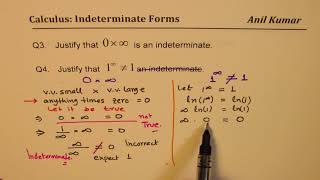 Calculus: Indeterminate Forms
Anil Kumar
Q3. Justify that 0×∞ is an indeterminate.
Q4. Justify that 1^∞ ≠ 1 an indeterminate.
0 × ∞
v.v.small × v.v. large
→ anything times zero = 0
Let it be true
not True.
⇒ 1/∞ × ∞ = 0
⇒ ∞/∞ ≠ 0 Incorrect
Indeterminate. expect 1
1^∞ ≠ 1
Let 1^∞ = 1
ln(1^∞) = ln(1)
∞ ln(1) = ln(1)
∞ · 0 = 0
not True.